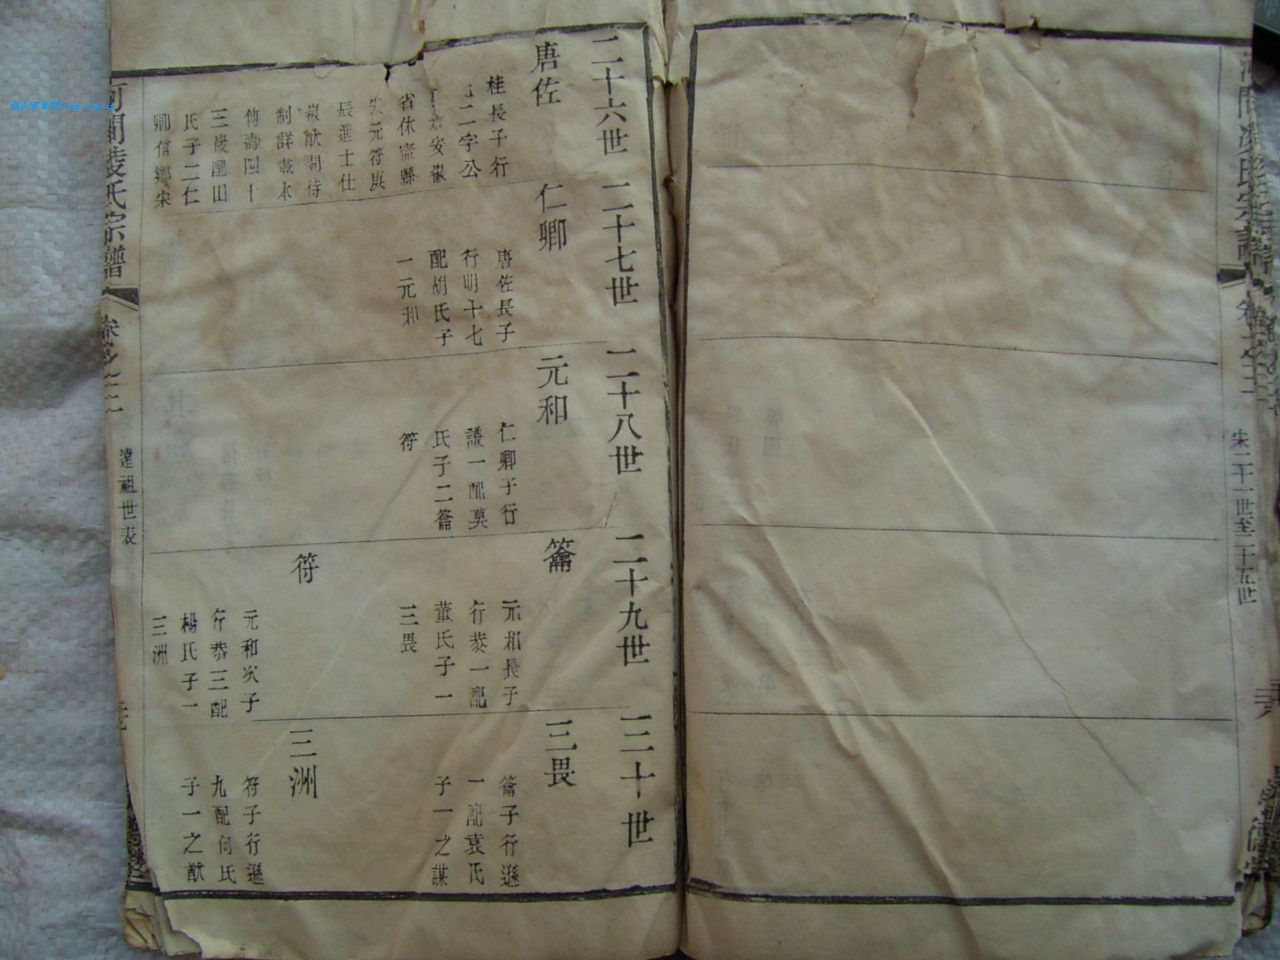 二十六世
唐佐
桂長子行
二字公
安徽
省休寧縣
元符庚
辰進士仕
徽猷閣待
制詳載本
傳壽四十
三歲配田
氏子二仁
卿信鄉宋
二十七世
仁卿
唐佐長子
行明十七
配胡氏子
一元和
二十八世
元和
仁卿子行
謙一配莫
氏子二籥
符
二十九世
籥
元和長子
行恭一配
董氏子一
三畏
符
元和次子
行恭三配
楊氏子一
三洲
三十世
三畏
籥子行遜
一配袁氏
子一之謀
三洲
符子行遜
九配何氏
子一之猷
河間凌氏宗譜
卷之二
遠祖世表
河間凌氏宗譜
卷之二
宋二十一世至二十五世